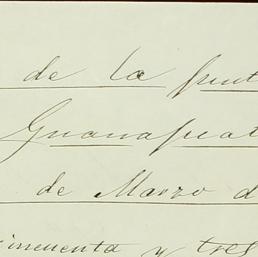 de la
Guanajuat
de Marzo d
incuenta y tres